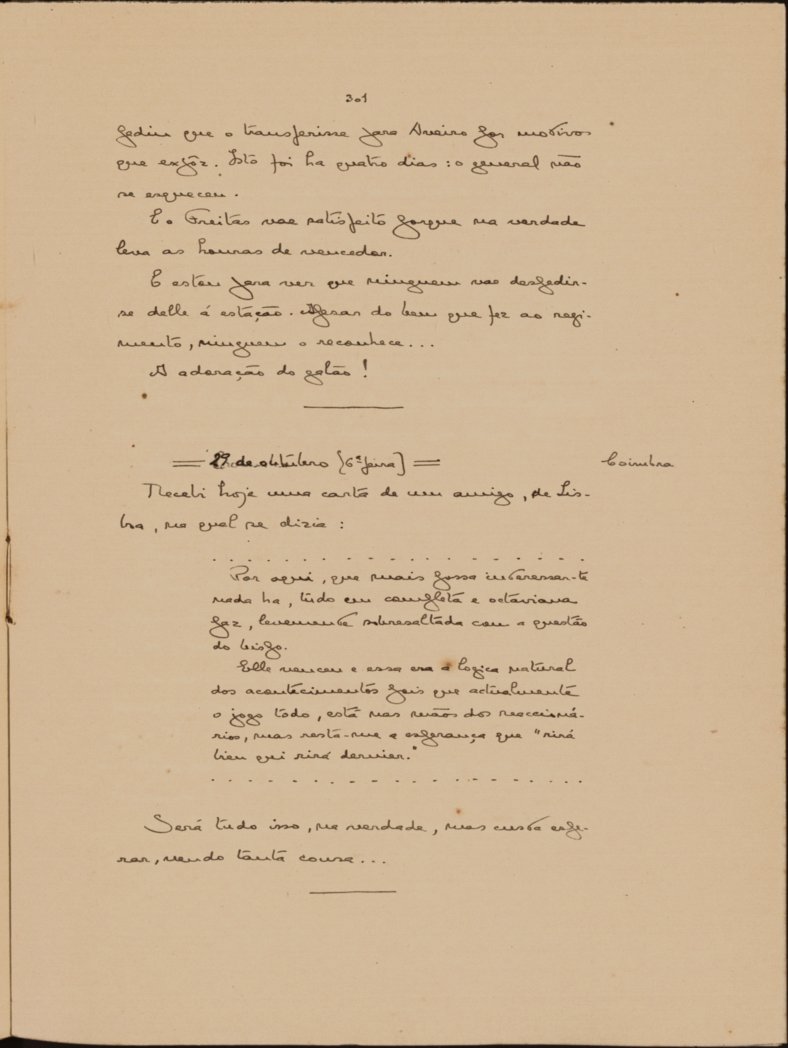 301
pediu que o transferisse para Aveiro por motivos
que expôz. Isto foi ha quatro dias: o general não
se esqueceu.
E o Freitas vae satisfeito porque na verdade
leva as honras de vencedor.
E estou para ver que ninguem vae despedir-
se delle á estação. Apesar do bem que fez ao regi-
mento, ninguem o reconhece...
A adoração do galão!
= 29 de outubro [6ª feira] = Coimbra
Recebi hoje uma carta de um amigo, de Lis-
boa, na qual se dizia:
. . . . . . . . . . . . . . . . . . .
Por aqui, que mais possa interessar-te
nada ha, tudo em completa e octaviana
paz, levemente sobresaltada com a questão
do bispo.
Elle venceu e essa era a logica natural
dos acontecimentos pois que actualmente
o jogo todo, está nas mãos dos reaccioná-
rios, mas resta-me a esperança que "rirá
bien qui rirá dernier."
. . . . . . . . . . . . . . . . . . .
Será tudo isso, na verdade, mas custa espe-
rar, vendo tanta cousa...